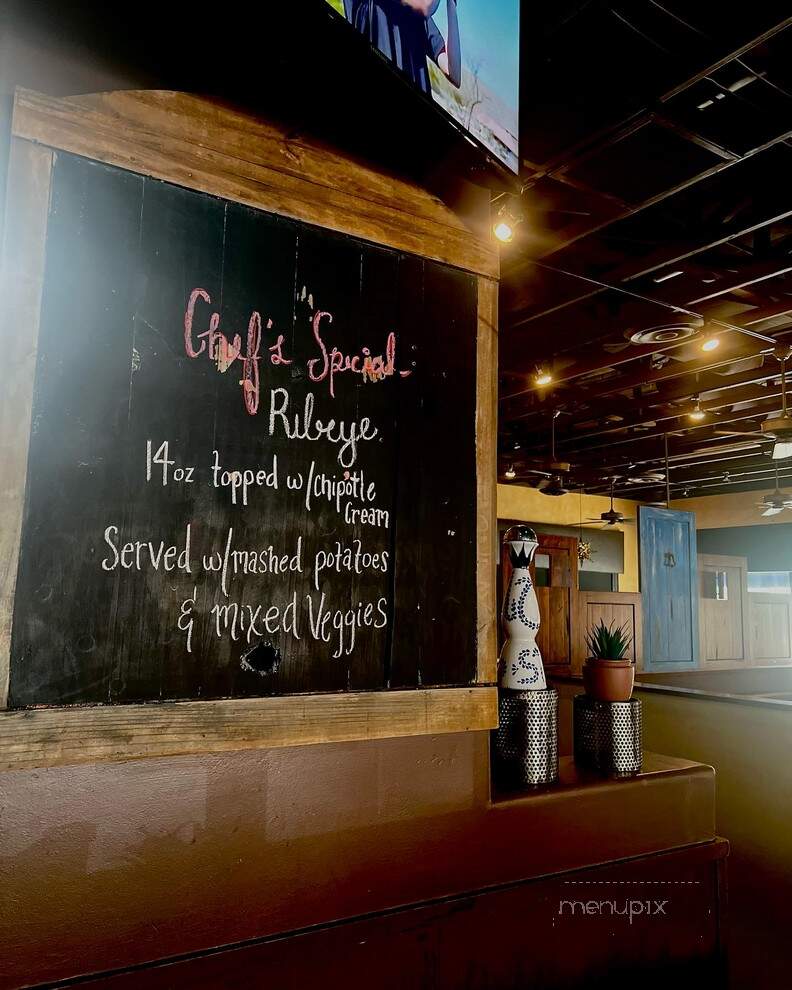 Chef's Special
Ribeye
14oz topped w/chipotle
Cream
Served w/mashed potatoes
& mixed Veggies
menupix